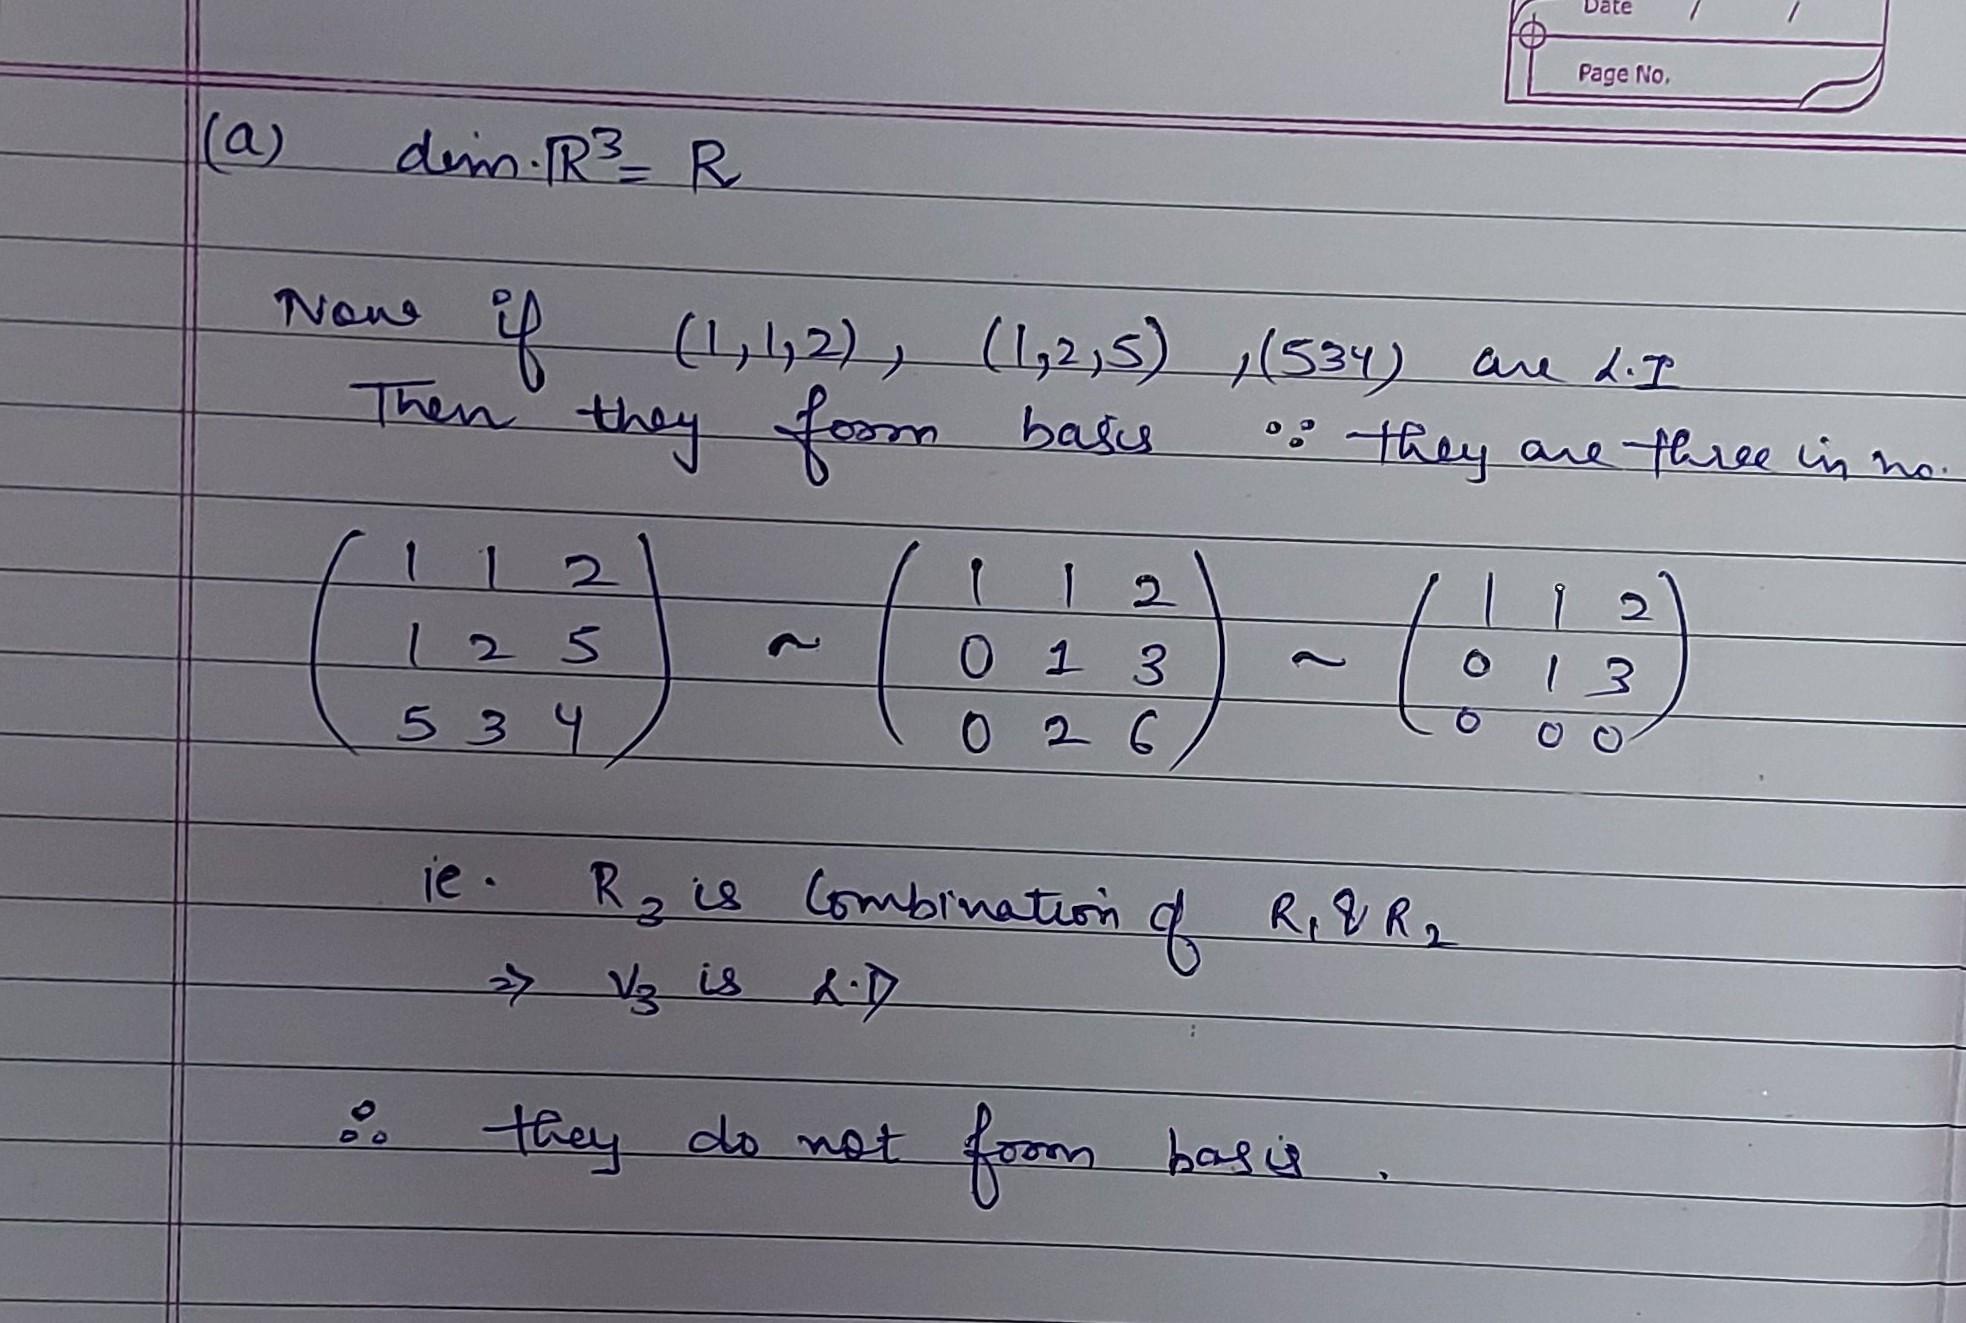 Date / /
Page No.
(a) dim. ℝ³ = R
Now if (1,1,2), (1,2,5), (534) are L.I
Then they form basis ∵ they are three in no.
( 1 1 2 ) ( 1 1 2 ) ( 1 1 2 )
( 1 2 5 ) ~ ( 0 1 3 ) ~ ( 0 1 3 )
( 5 3 4 ) ( 0 2 6 ) ( 0 0 0 )
ie. R₃ is Combination of R₁ & R₂
⇒ V₃ is L.D
∴ they do not form basis.